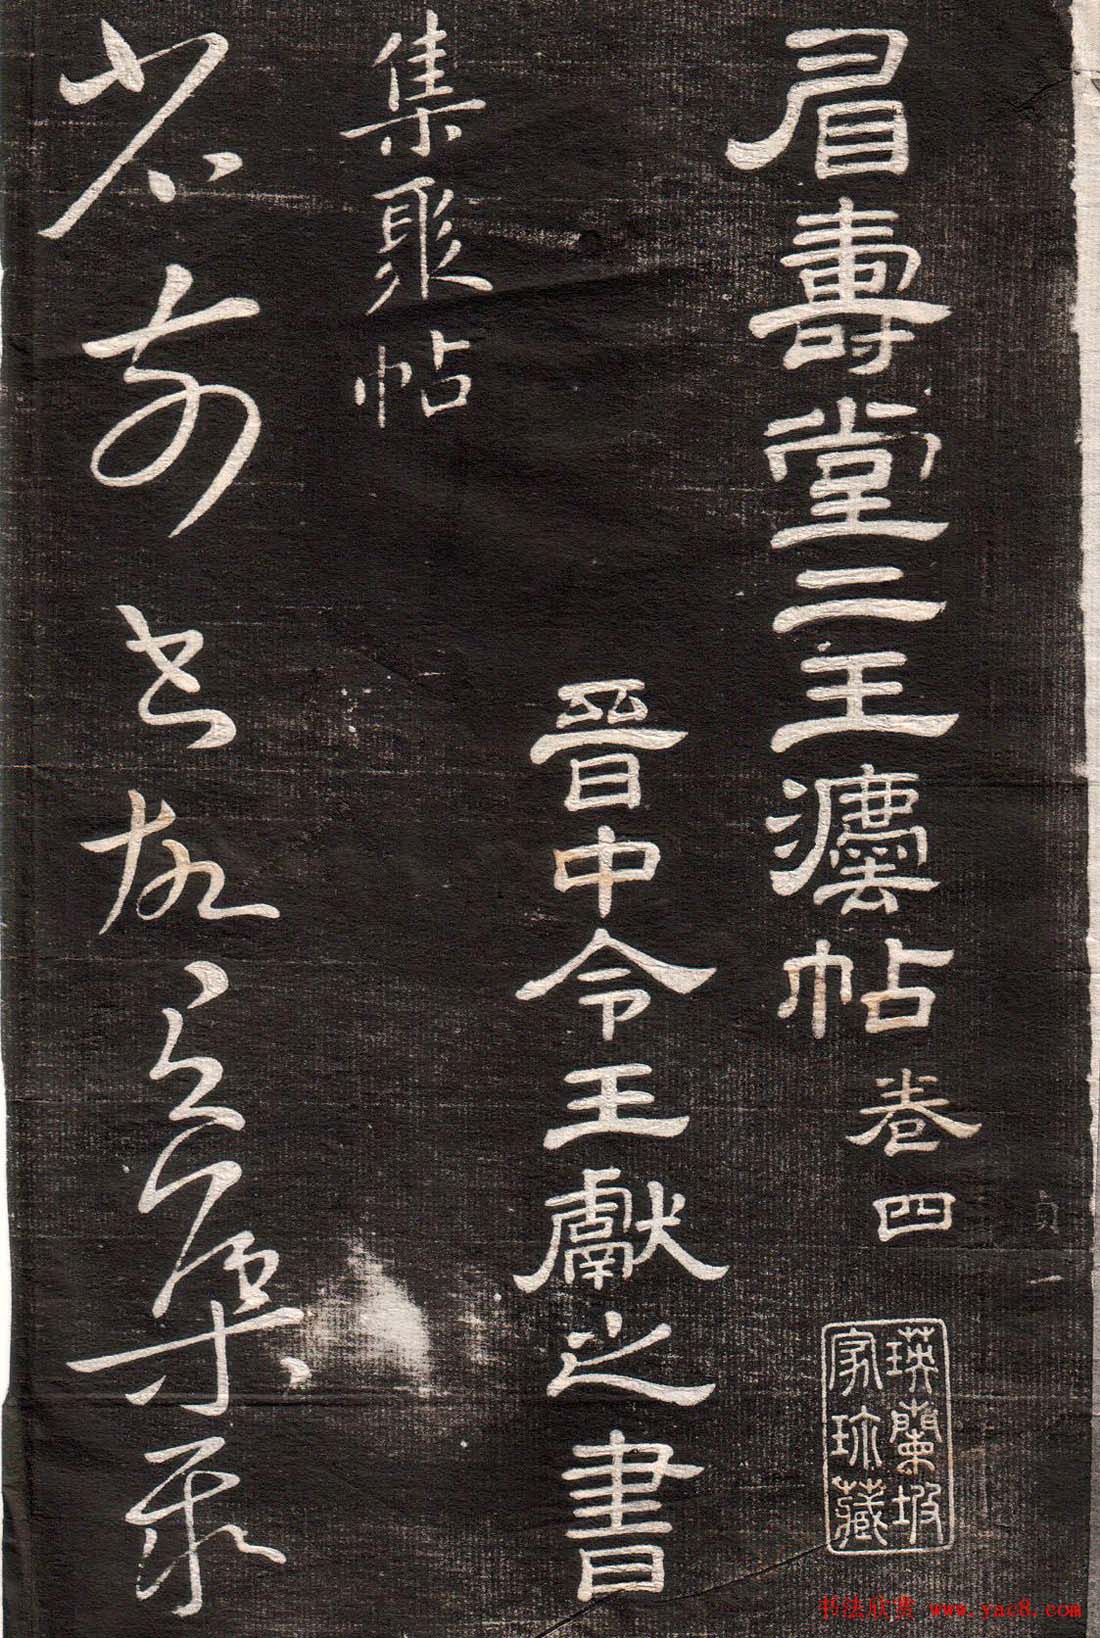 眉壽堂二王灋帖卷四
瑛蘭坡
家珍藏
晉中令王獻之書
集聚帖
省前書故有集聚
书法欣赏 www.yac8.com